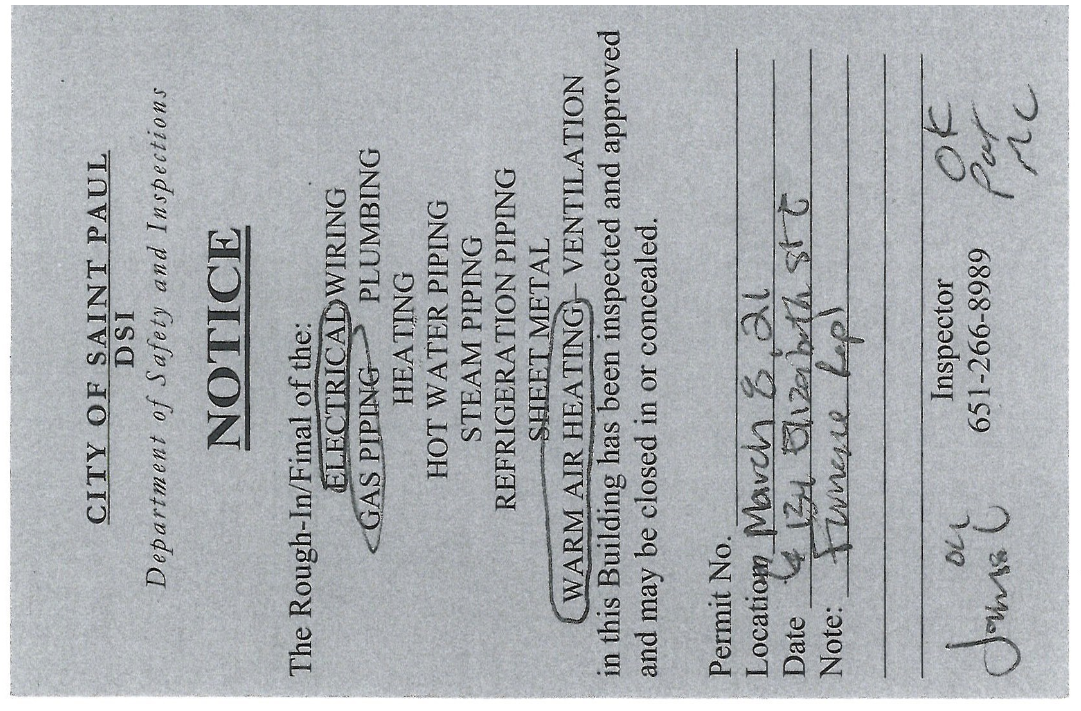 CITY OF SAINT PAUL
DSI
Department of Safety and Inspections
NOTICE
The Rough-In/Final of the:
ELECTRICAL WIRING
GAS PIPING PLUMBING
HEATING
HOT WATER PIPING
STEAM PIPING
REFRIGERATION PIPING
SHEET METAL
WARM AIR HEATING – VENTILATION
in this Building has been inspected and approved
and may be closed in or concealed.
Permit No.
Location March 8, 21
Date Elizabeth St E
Note: Furnace Repl
Inspector
651-266-8989
OK